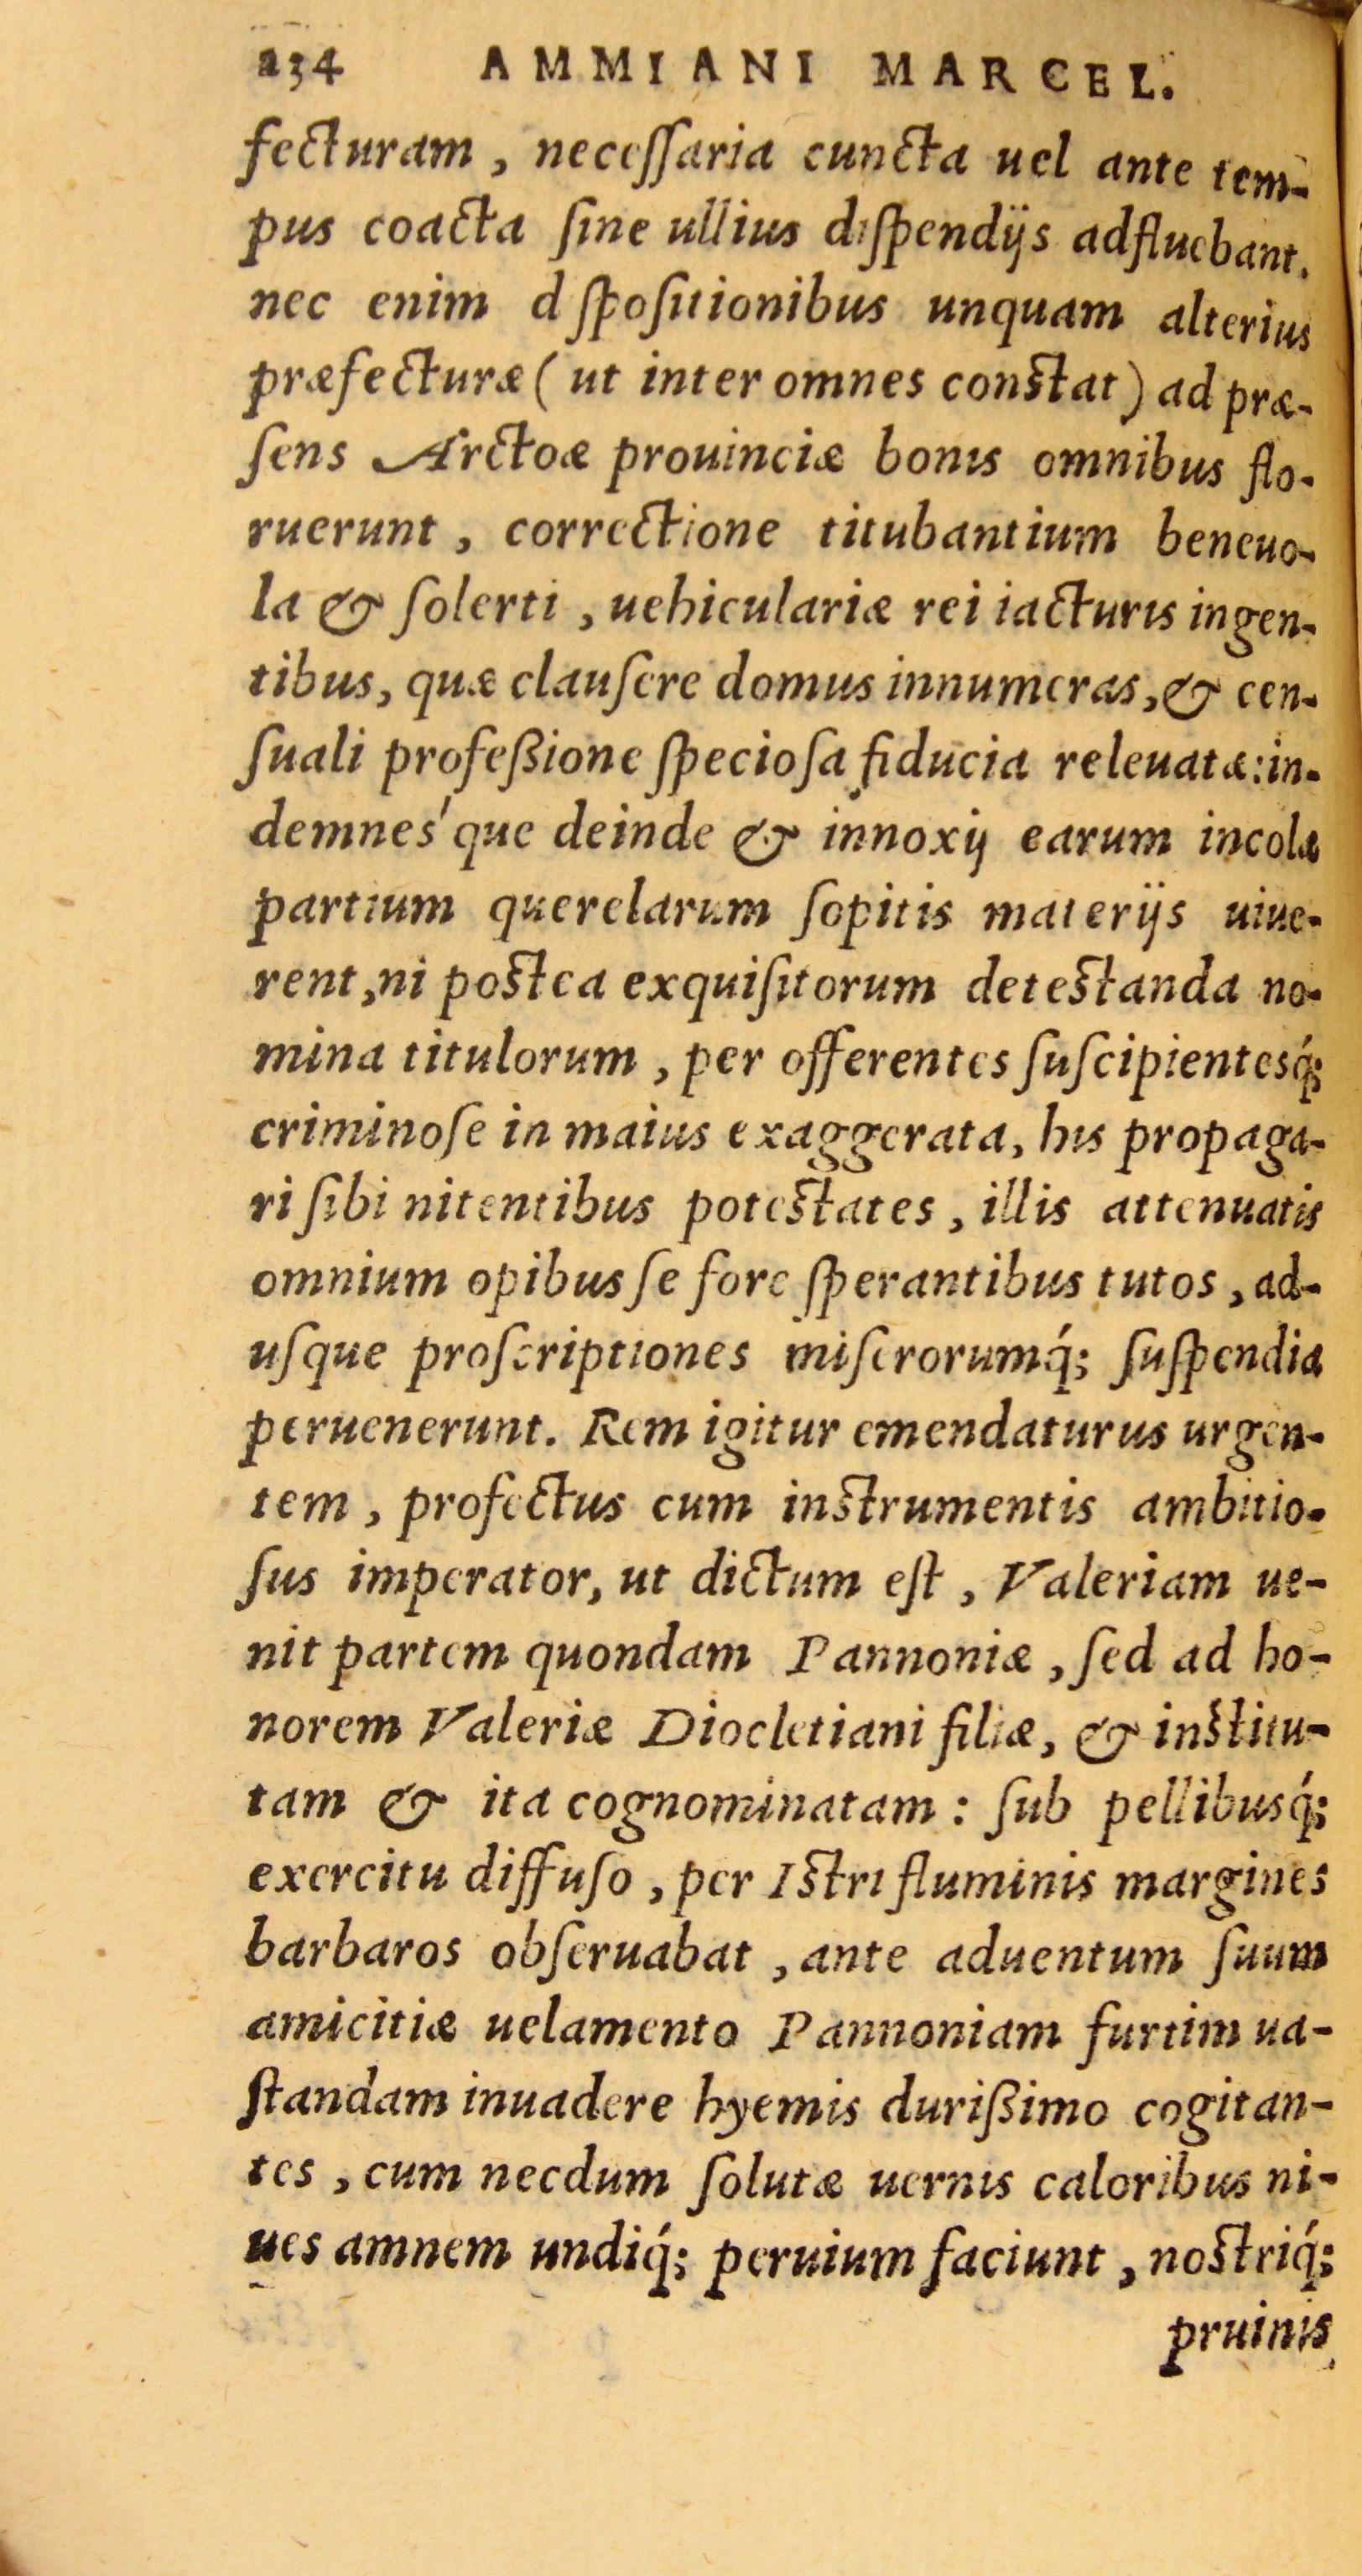 234 AMMIANI MARCEL.
fecturam, neceſſaria cuncta uel ante tem-
pus coacta ſine ullius diſpendijs adfluebant.
nec enim d ſpoſitionibus unquam alterius
præfecturæ (ut inter omnes conſtat) ad præ-
ſens Arctoæ prouinciæ bonis omnibus flo-
ruerunt, correctione titubantium beneuo-
la & ſolerti, uehiculariæ rei iacturis ingen-
tibus, quæ clauſere domus innumeras, & cen-
ſuali profeßione ſpecioſa fiducia releuatæ: in-
demnes'que deinde & innoxij earum incolæ
partium querelarum ſopitis materijs uiue-
rent, ni poſtea exquiſitorum deteſtanda no-
mina titulorum, per offerentes ſuſcipientesq́;
criminoſe in maius exaggerata, his propaga-
ri ſibi nitentibus poteſtates, illis attenuatis
omnium opibus ſe fore ſperantibus tutos, ad-
uſque proſcriptiones miſerorumq́; ſuſpendia
peruenerunt. Rem igitur emendaturus urgen-
tem, profectus cum inſtrumentis ambitio-
ſus imperator, ut dictum eſt, Valeriam ue-
nit partem quondam Pannoniæ, ſed ad ho-
norem Valeriæ Diocletiani filiæ, & inſtitu-
tam & ita cognominatam: ſub pellibusq́;
exercitu diffuſo, per Iſtri fluminis margines
barbaros obſeruabat, ante aduentum ſuum
amicitiæ uelamento Pannoniam furtim ua-
ſtandam inuadere hyemis durißimo cogitan-
tes, cum necdum ſolutæ uernis caloribus ni-
ues amnem undiq́; peruium faciunt, noſtriq́;
pruinis